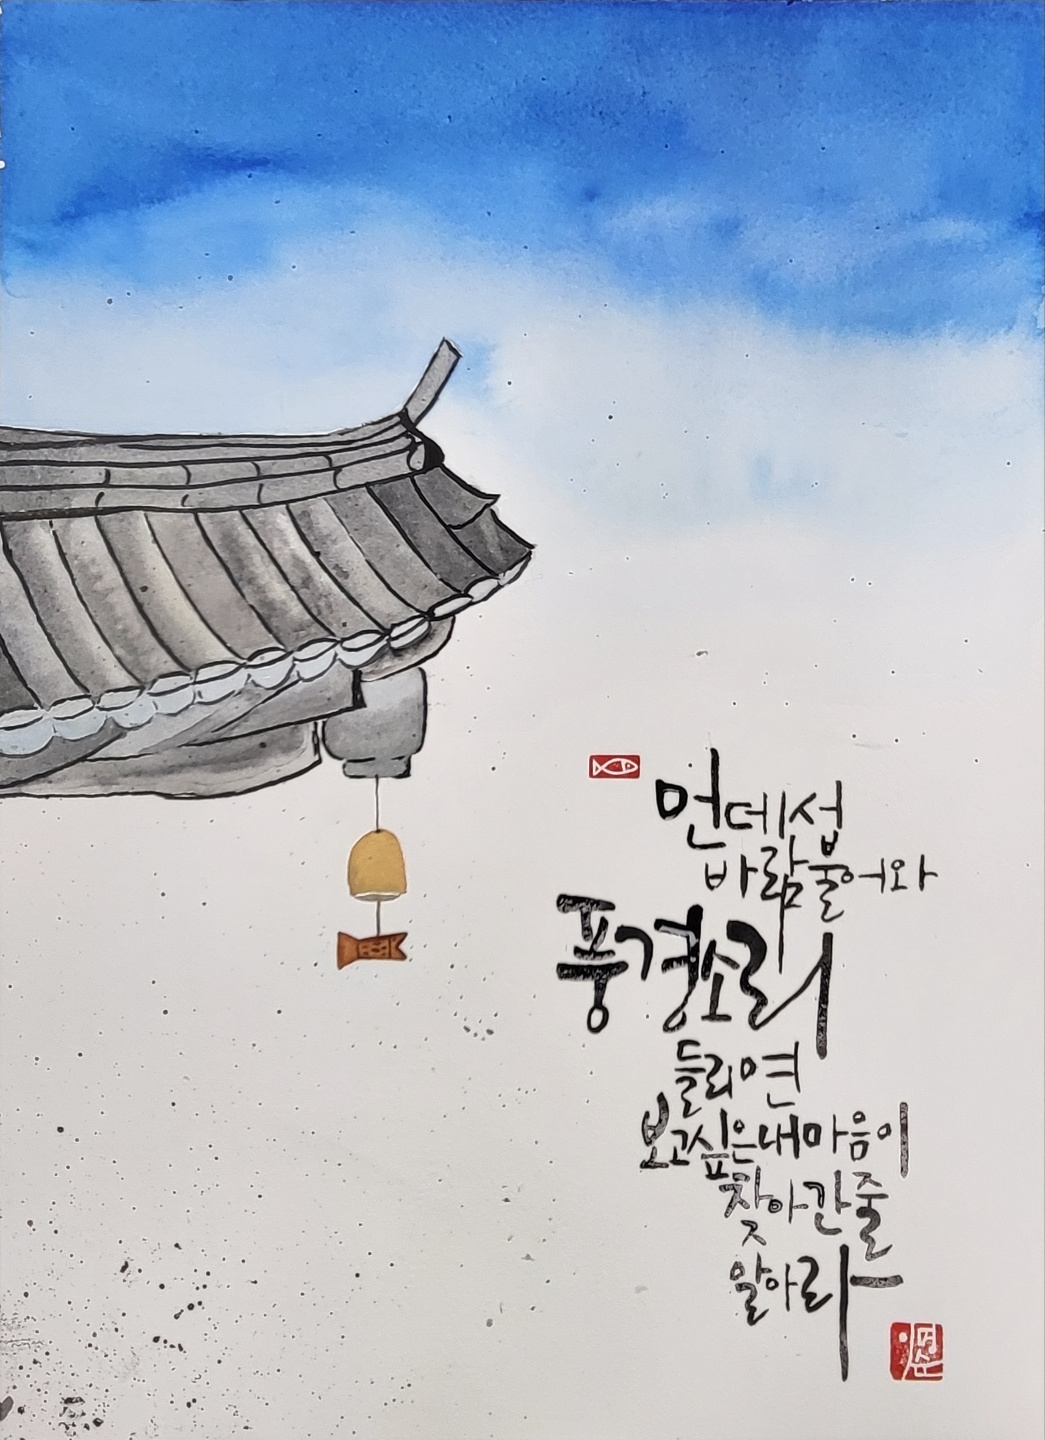 먼데섭
바람불어와
풍경소리
들리면
보고싶은내마음이
찾아간줄
알아라